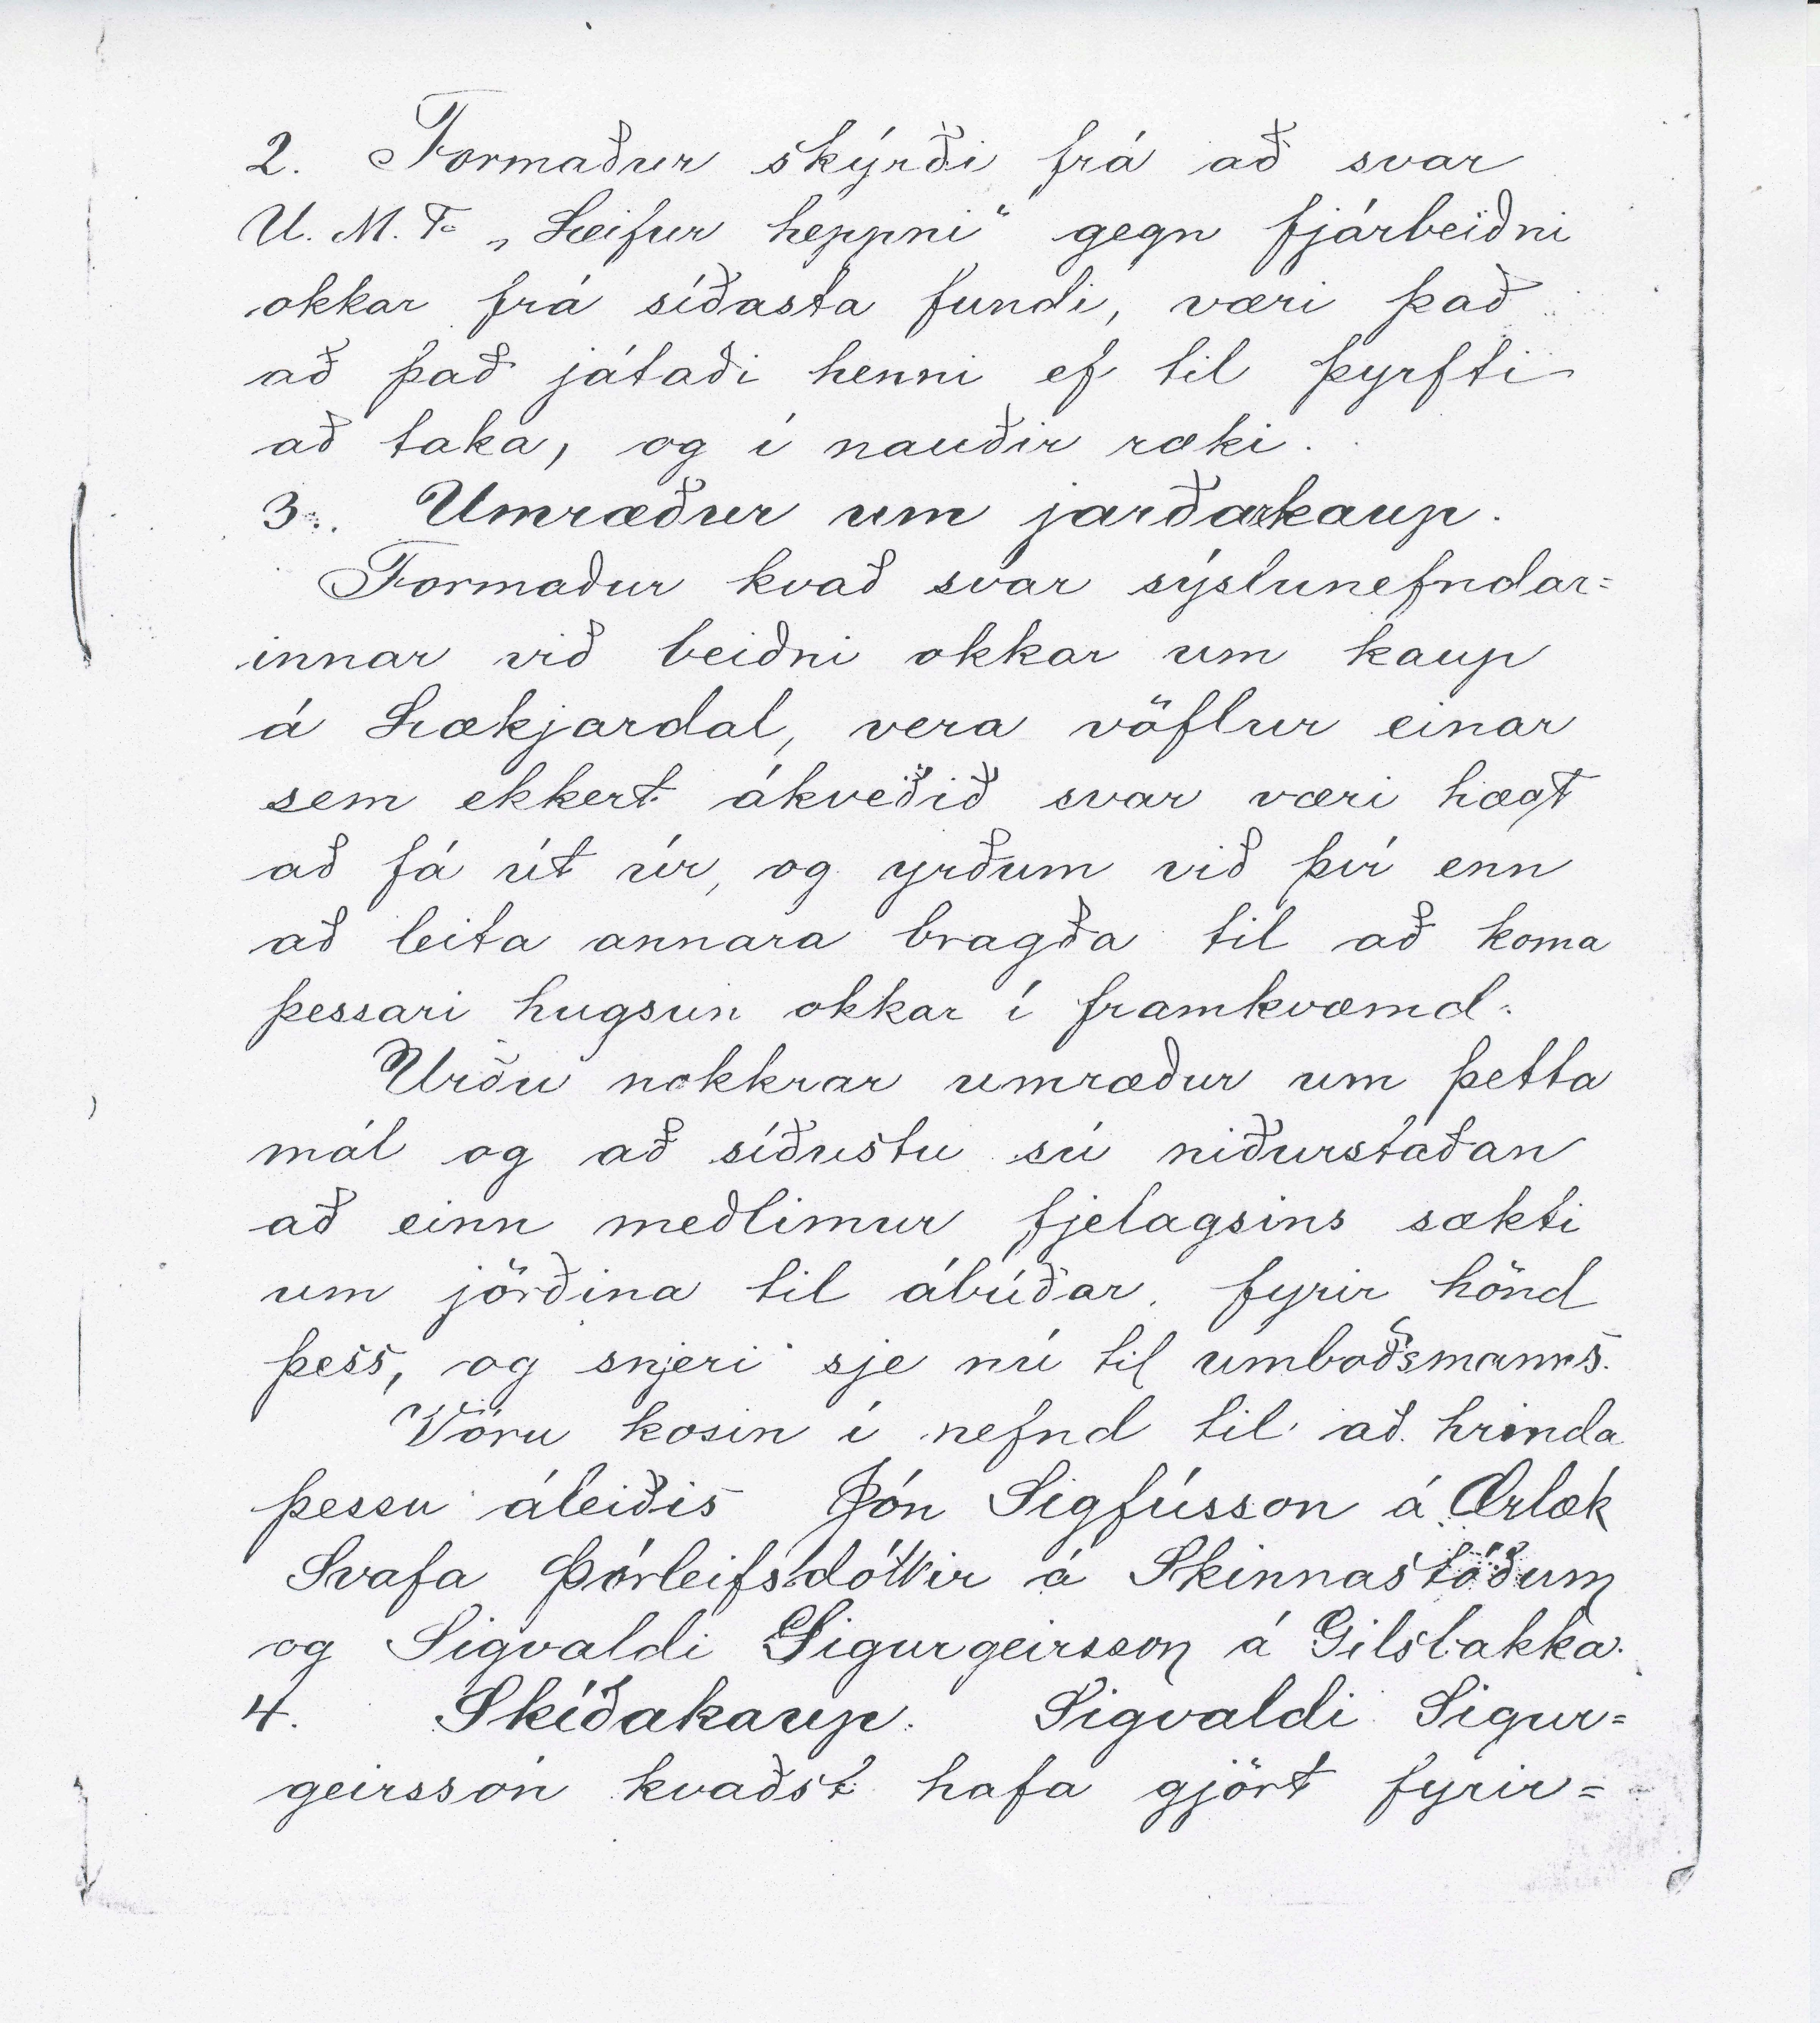 2. Formaður skýrði frá að svar
U. M. F. „Leifur heppni“ gegn fjárbeiðni
okkar frá síðasta fundi, væri það
að það játaði henni ef til þyrfti
að taka, og í nauðir ræki.
3. Umræður um jarðarkaup.
Formaður kvað svar sýslunefndar=
innar við beiðni okkar um kaup
á Lækjardal, vera vöflur einar
sem ekkert ákveðið svar væri hægt
að fá út úr, og yrðum við því enn
að leita annara bragða til að koma
þessari hugsun okkar í framkvæmd.
Urðu nokkrar umræður um þetta
mál og að síðustu sú niðurstaðan
að einn meðlimur fjelagsins sækti
um jörðina til ábúðar, fyrir hönd
þess, og snjeri sje nú til umboðsmanns.
Vóru kosin í nefnd til að hrinda
þessu áleiðis Jón Sigfússon á Ærlæk
Svafa Þórleifsdóttir á Skinnastöðum
og Sigvaldi Sigurgeirsson á Gilsbakka.
4. Skíðakaup. Sigvaldi Sigur=
geirsson kvaðst hafa gjört fyrir=